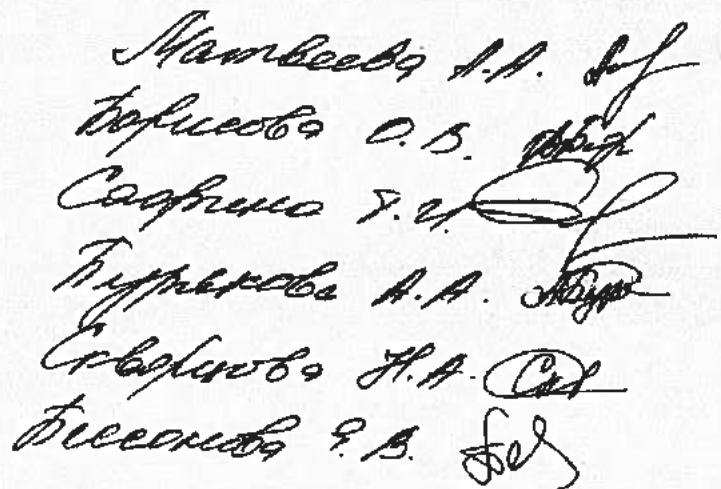 Матвеева А.А.
Борисова О.В.
Садрина
Бурмакова А.А.
Скворцова Н.А.
Бессонова Е.В.